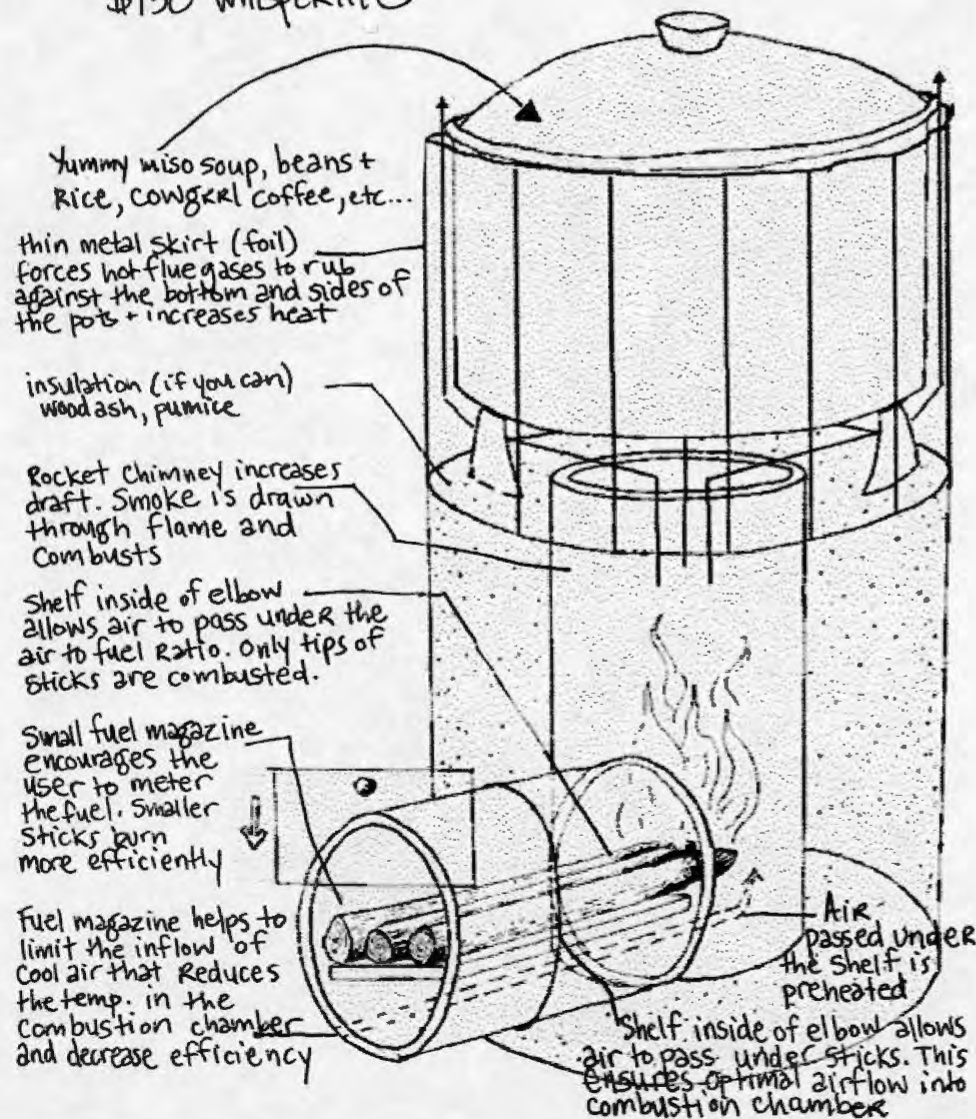 $150 Whisperlite
Yummy miso soup, beans +
Rice, cowgrrl coffee, etc...
thin metal skirt (foil)
forces hot flue gases to rub
against the bottom and sides of
the pots + increases heat
insulation (if you can)
wood ash, pumice
Rocket Chimney increases
draft. Smoke is drawn
through flame and
combusts
Shelf inside of elbow
allows air to pass under the
air to fuel Ratio. Only tips of
sticks are combusted.
Small fuel magazine
encourages the
user to meter
the fuel. Smaller
Sticks burn
more efficiently
Fuel magazine helps to
limit the inflow of
cool air that Reduces
the temp. in the
combustion chamber
and decrease efficiency
Air
passed under
the shelf is
preheated
Shelf inside of elbow allows
air to pass under sticks. This
ensures optimal airflow into
combustion chamber